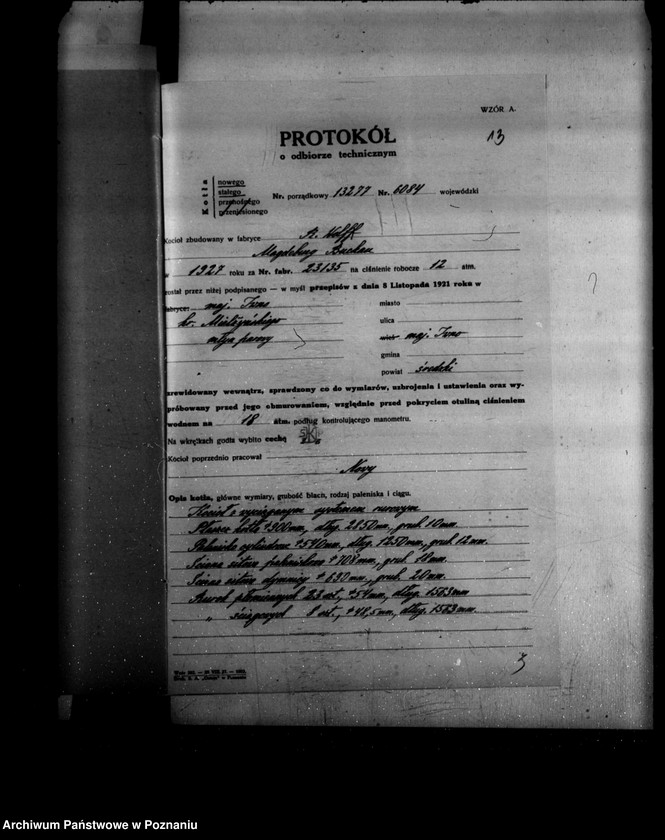 WZÓR A.
13
PROTOKÓŁ
o odbiorze technicznym
Kotła
nowego
stałego
przenośnego
przeniesionego
Nr. porządkowy 13277 Nr. 6084 wojewódzki
Kocioł zbudowany w fabryce R. Wolff
Magdeburg Buckau
w 1927 roku za Nr. fabr. 23135 na ciśnienie robocze 12 atm.
został przez niżej podpisanego — w myśl przepisów z dnia 8 Listopada 1921 roku w
fabryce: maj. Iwno
hr. Mielżyńskiego
młyn parowy
miasto
ulica
wieś maj. Iwno
gmina
powiat średzki
zrewidowany wewnątrz, sprawdzony co do wymiarów, uzbrojenia i ustawienia oraz wy-
próbowany przed jego obmurowaniem, względnie przed pokryciem otuliną ciśnieniem
wodnem na 18 atm. podług kontrolującego manometru.
Na wkrętkach godła wybito cechę
Kocioł poprzednio pracował
Nowy
Opis kotła, główne wymiary, grubość blach, rodzaj paleniska i ciągu.
Kocioł z wyciąganym systemem rurowym
Płaszcz kotła ø 900 mm, dług. 2850 mm, grub. 10 mm.
Palenisko cylindrowe ø 540 mm, dług. 1250 mm, grub. 12 mm.
Ściana sitowa paleniskowa ø 708 mm, grub. 18 mm.
Ściana sitowa dymnicy ø 690 mm, grub. 20 mm.
Rurek płomiennych 23 szt., ø 54 mm, dług. 1563 mm
" ściągowych 8 szt., ø 48,5 mm, dług. 1563 mm.
3